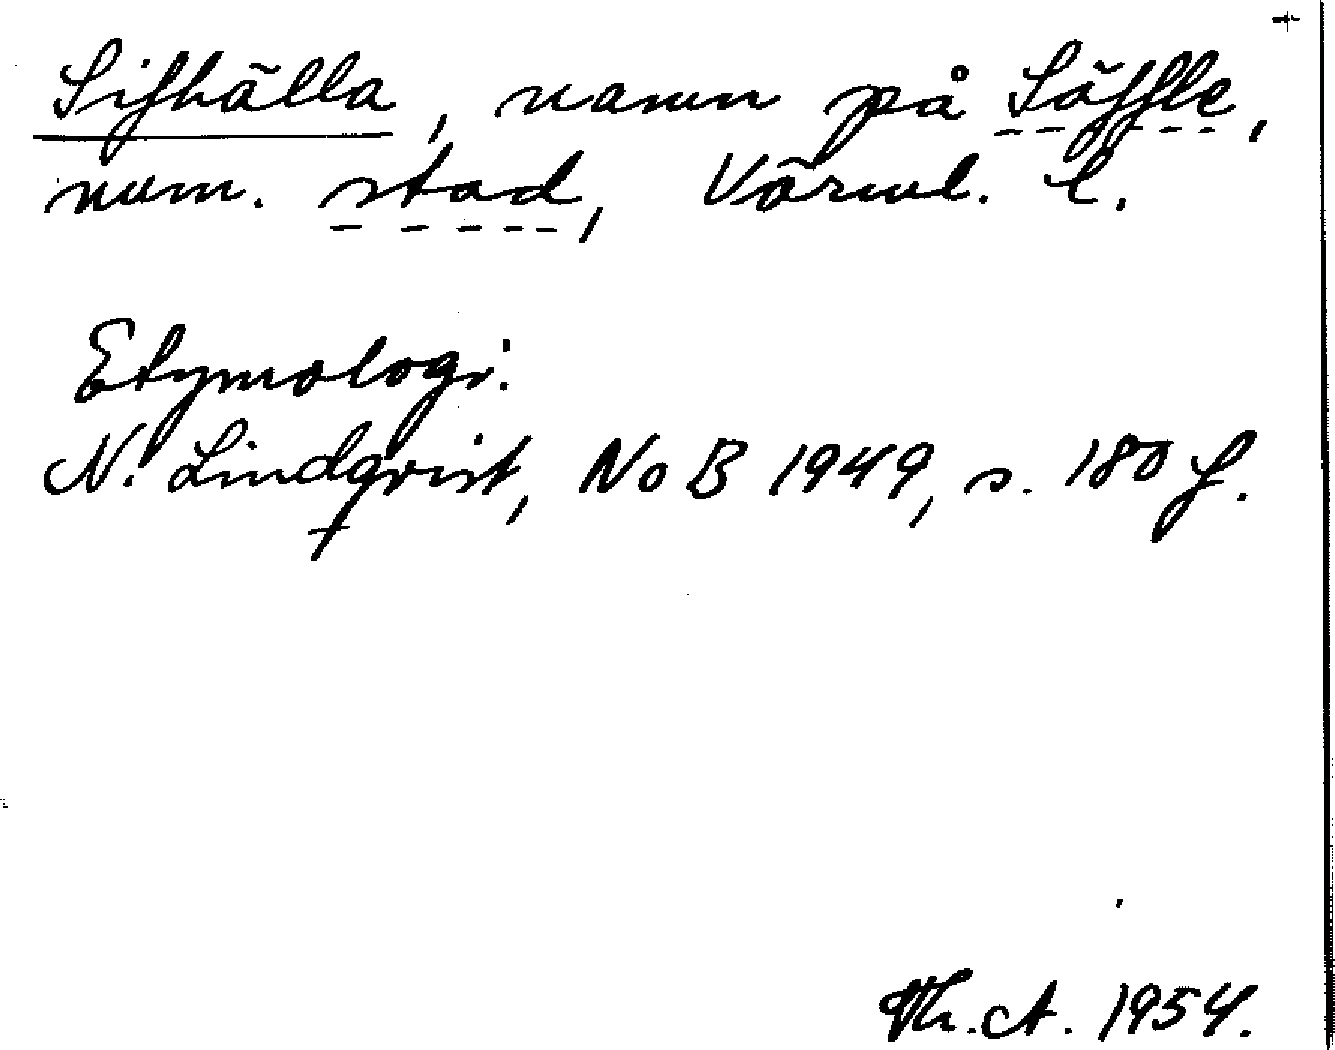 Sifhälla, namn på Säffle,
num. stad, Värml. l.
Etymologi:
N. Lindqvist, NoB 1949, s. 180 f.
Th. A. 1954.